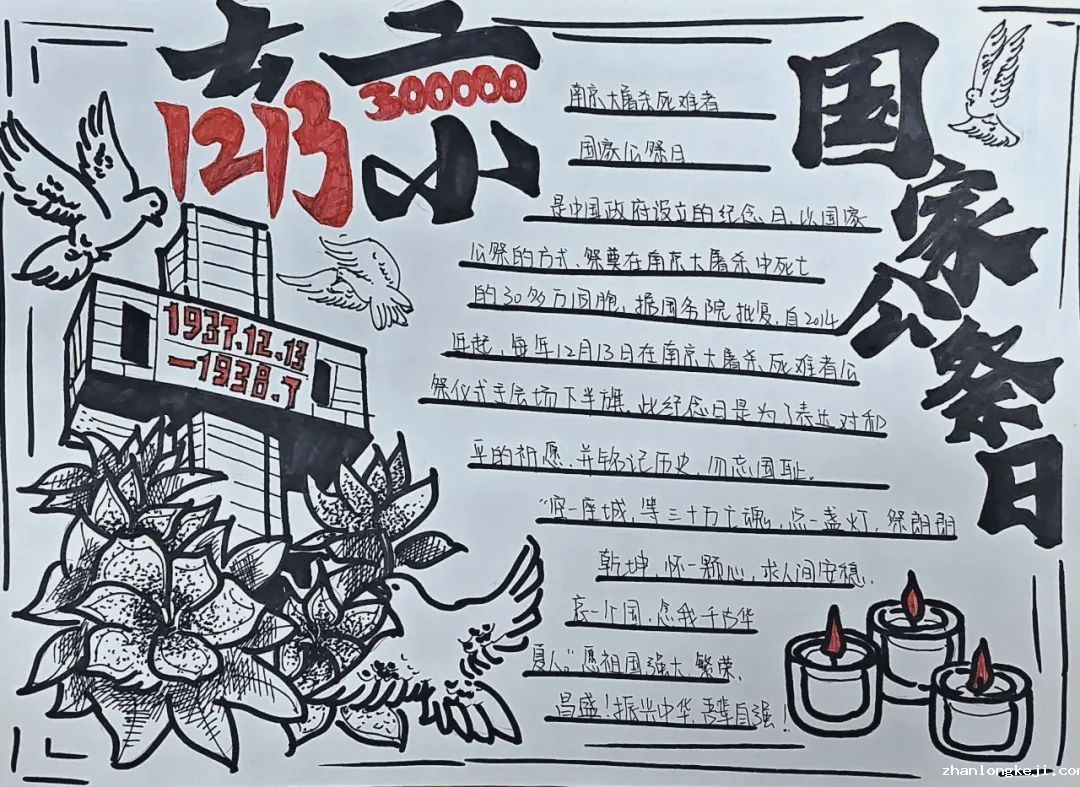 南京
1213
300000
国家公祭日
1937.12.13
—1938.1
南京大屠杀死难者
国家公祭日
是中国政府设立的纪念日,以国家
公祭的方式,祭奠在南京大屠杀中死亡
的30多万同胞,据国务院批复,自2014
年起,每年12月13日在南京大屠杀死难者公
祭仪式主会场下半旗,此纪念日是为了表达对和
平的祈愿,并铭记历史,勿忘国耻。
一座城,等三十万亡魂,点一盏灯,祭朗朗
乾坤,怀一颗心,求人间安稳,
一个国,念我千古华
夏人。”愿祖国强大、繁荣、
昌盛!振兴中华,吾辈自强!
zhanlongkeji.com